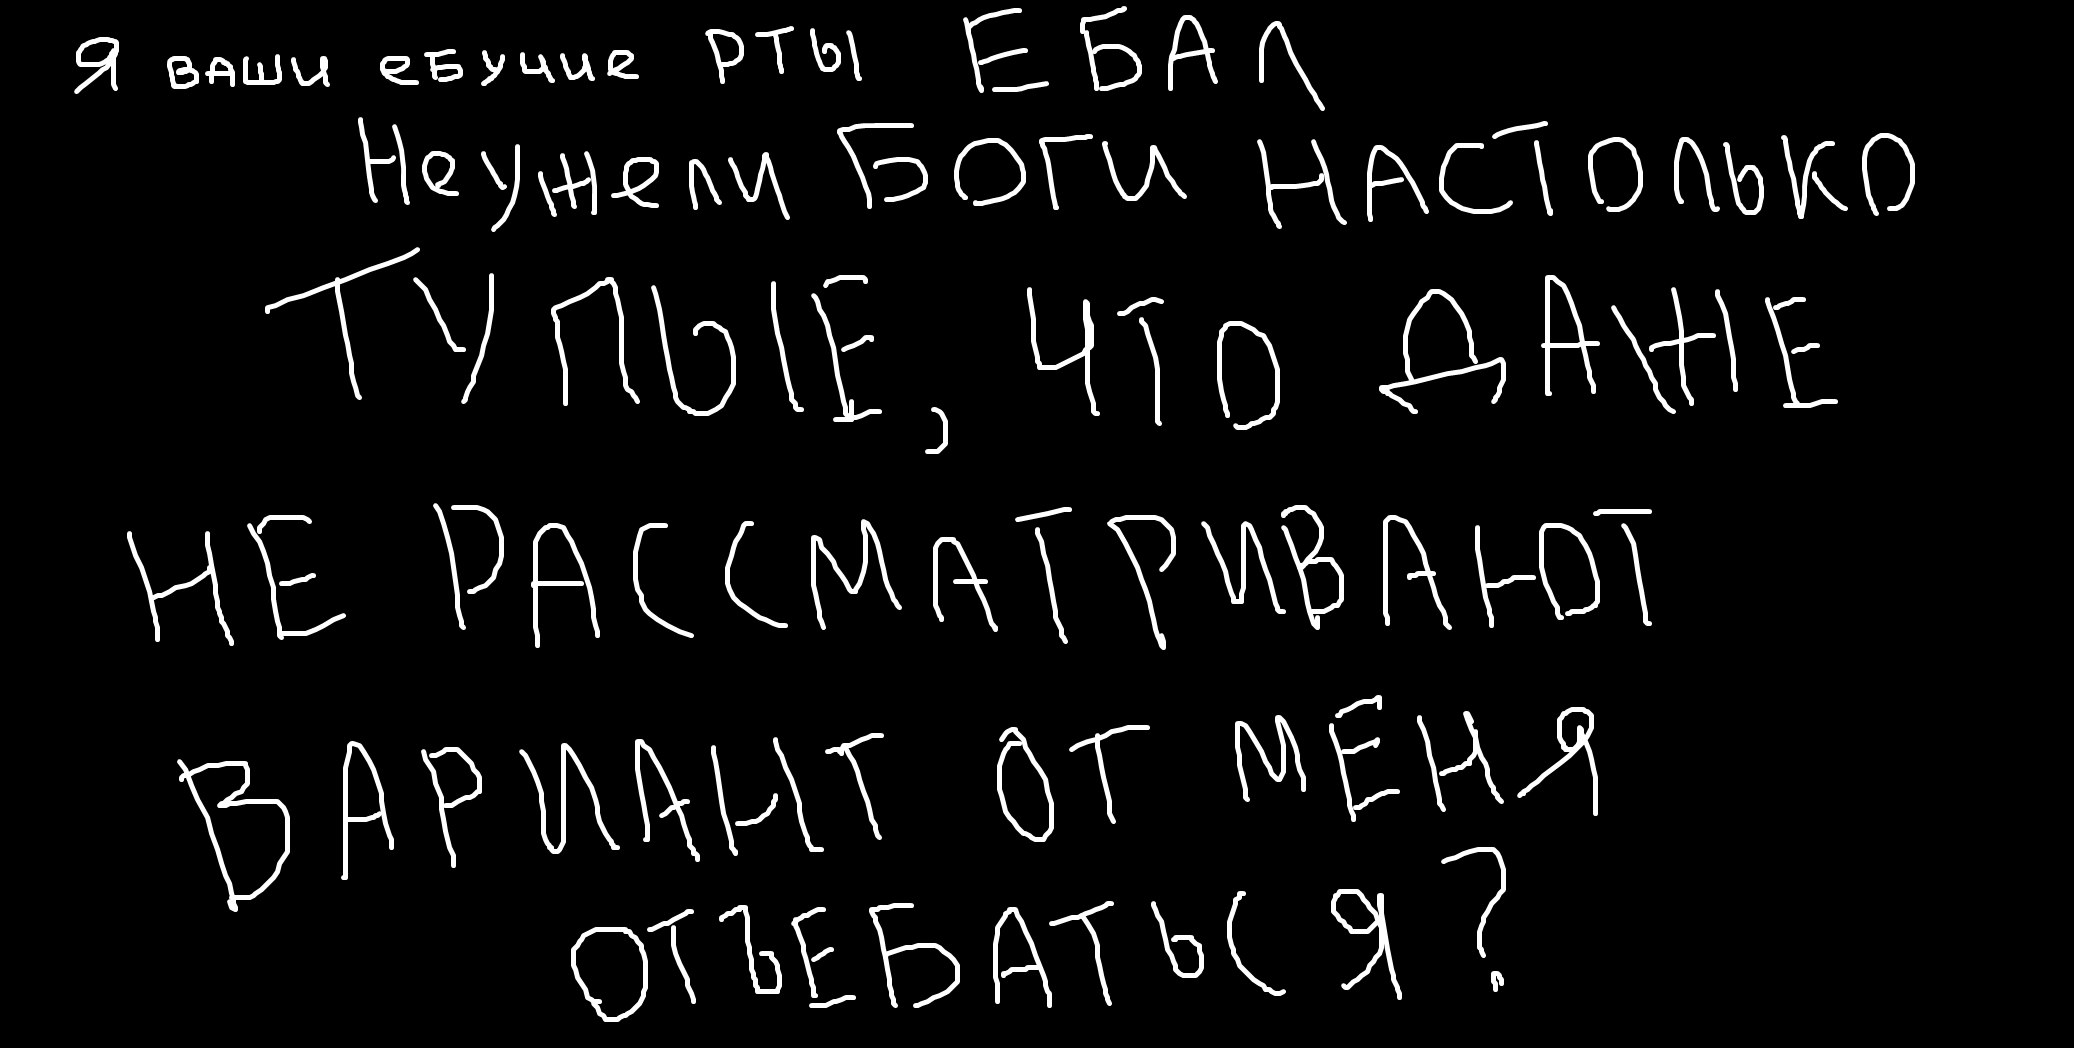 Я ваши ебучие РТЫ ЕБАЛ
Неужели БОГИ НАСТОЛЬКО
ТУПЫЕ, ЧТО ДАЖЕ
НЕ РАССМАТРИВАЮТ
ВАРИАНТ ОТ МЕНЯ
ОТЪЕБАТЬСЯ?